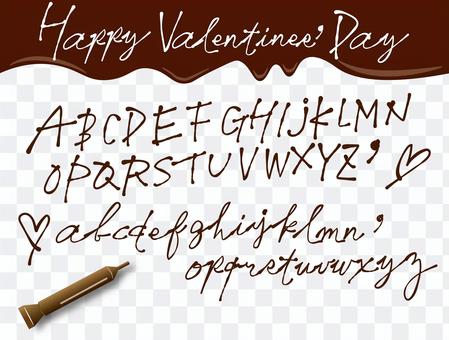 Happy Valentines' Day
ABCDEFGHIJKLMN
OPQRSTUVWXYZ'
abcdefghijklmn'
opqrstuvwxyz